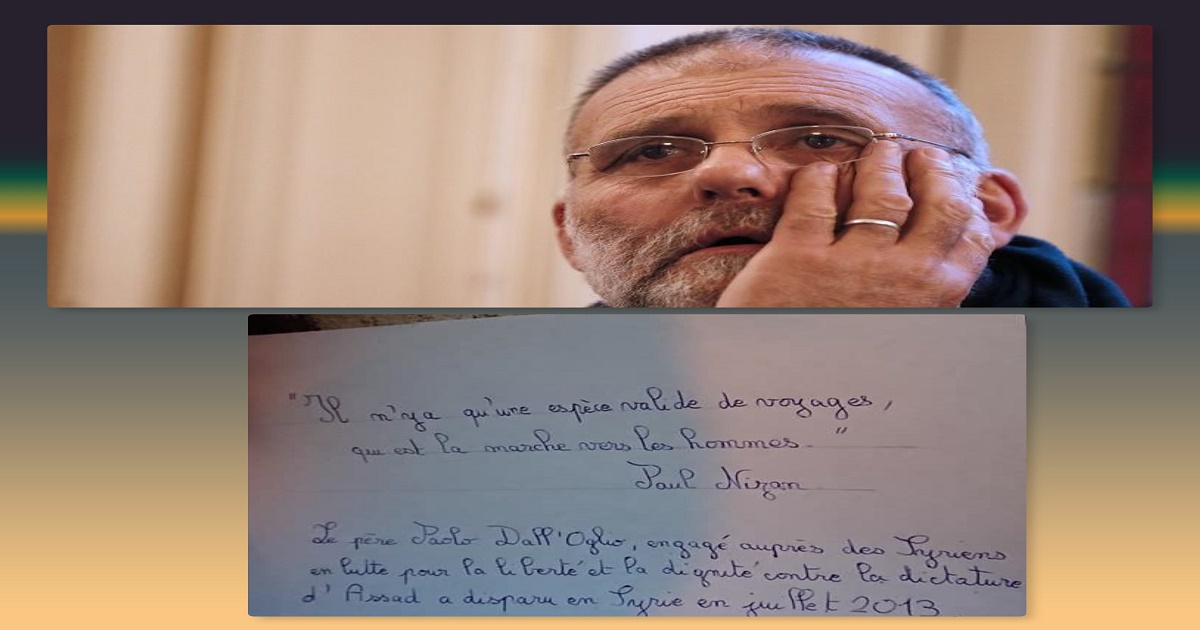 "Il n'y a qu'une espèce valide de voyages,
qui est la marche vers les hommes."
Paul Nizan
Le père Paolo Dall'Oglio, engagé auprès des Syriens
en lutte pour la liberté et la dignité contre la dictature
d'Assad a disparu en Syrie en juillet 2013